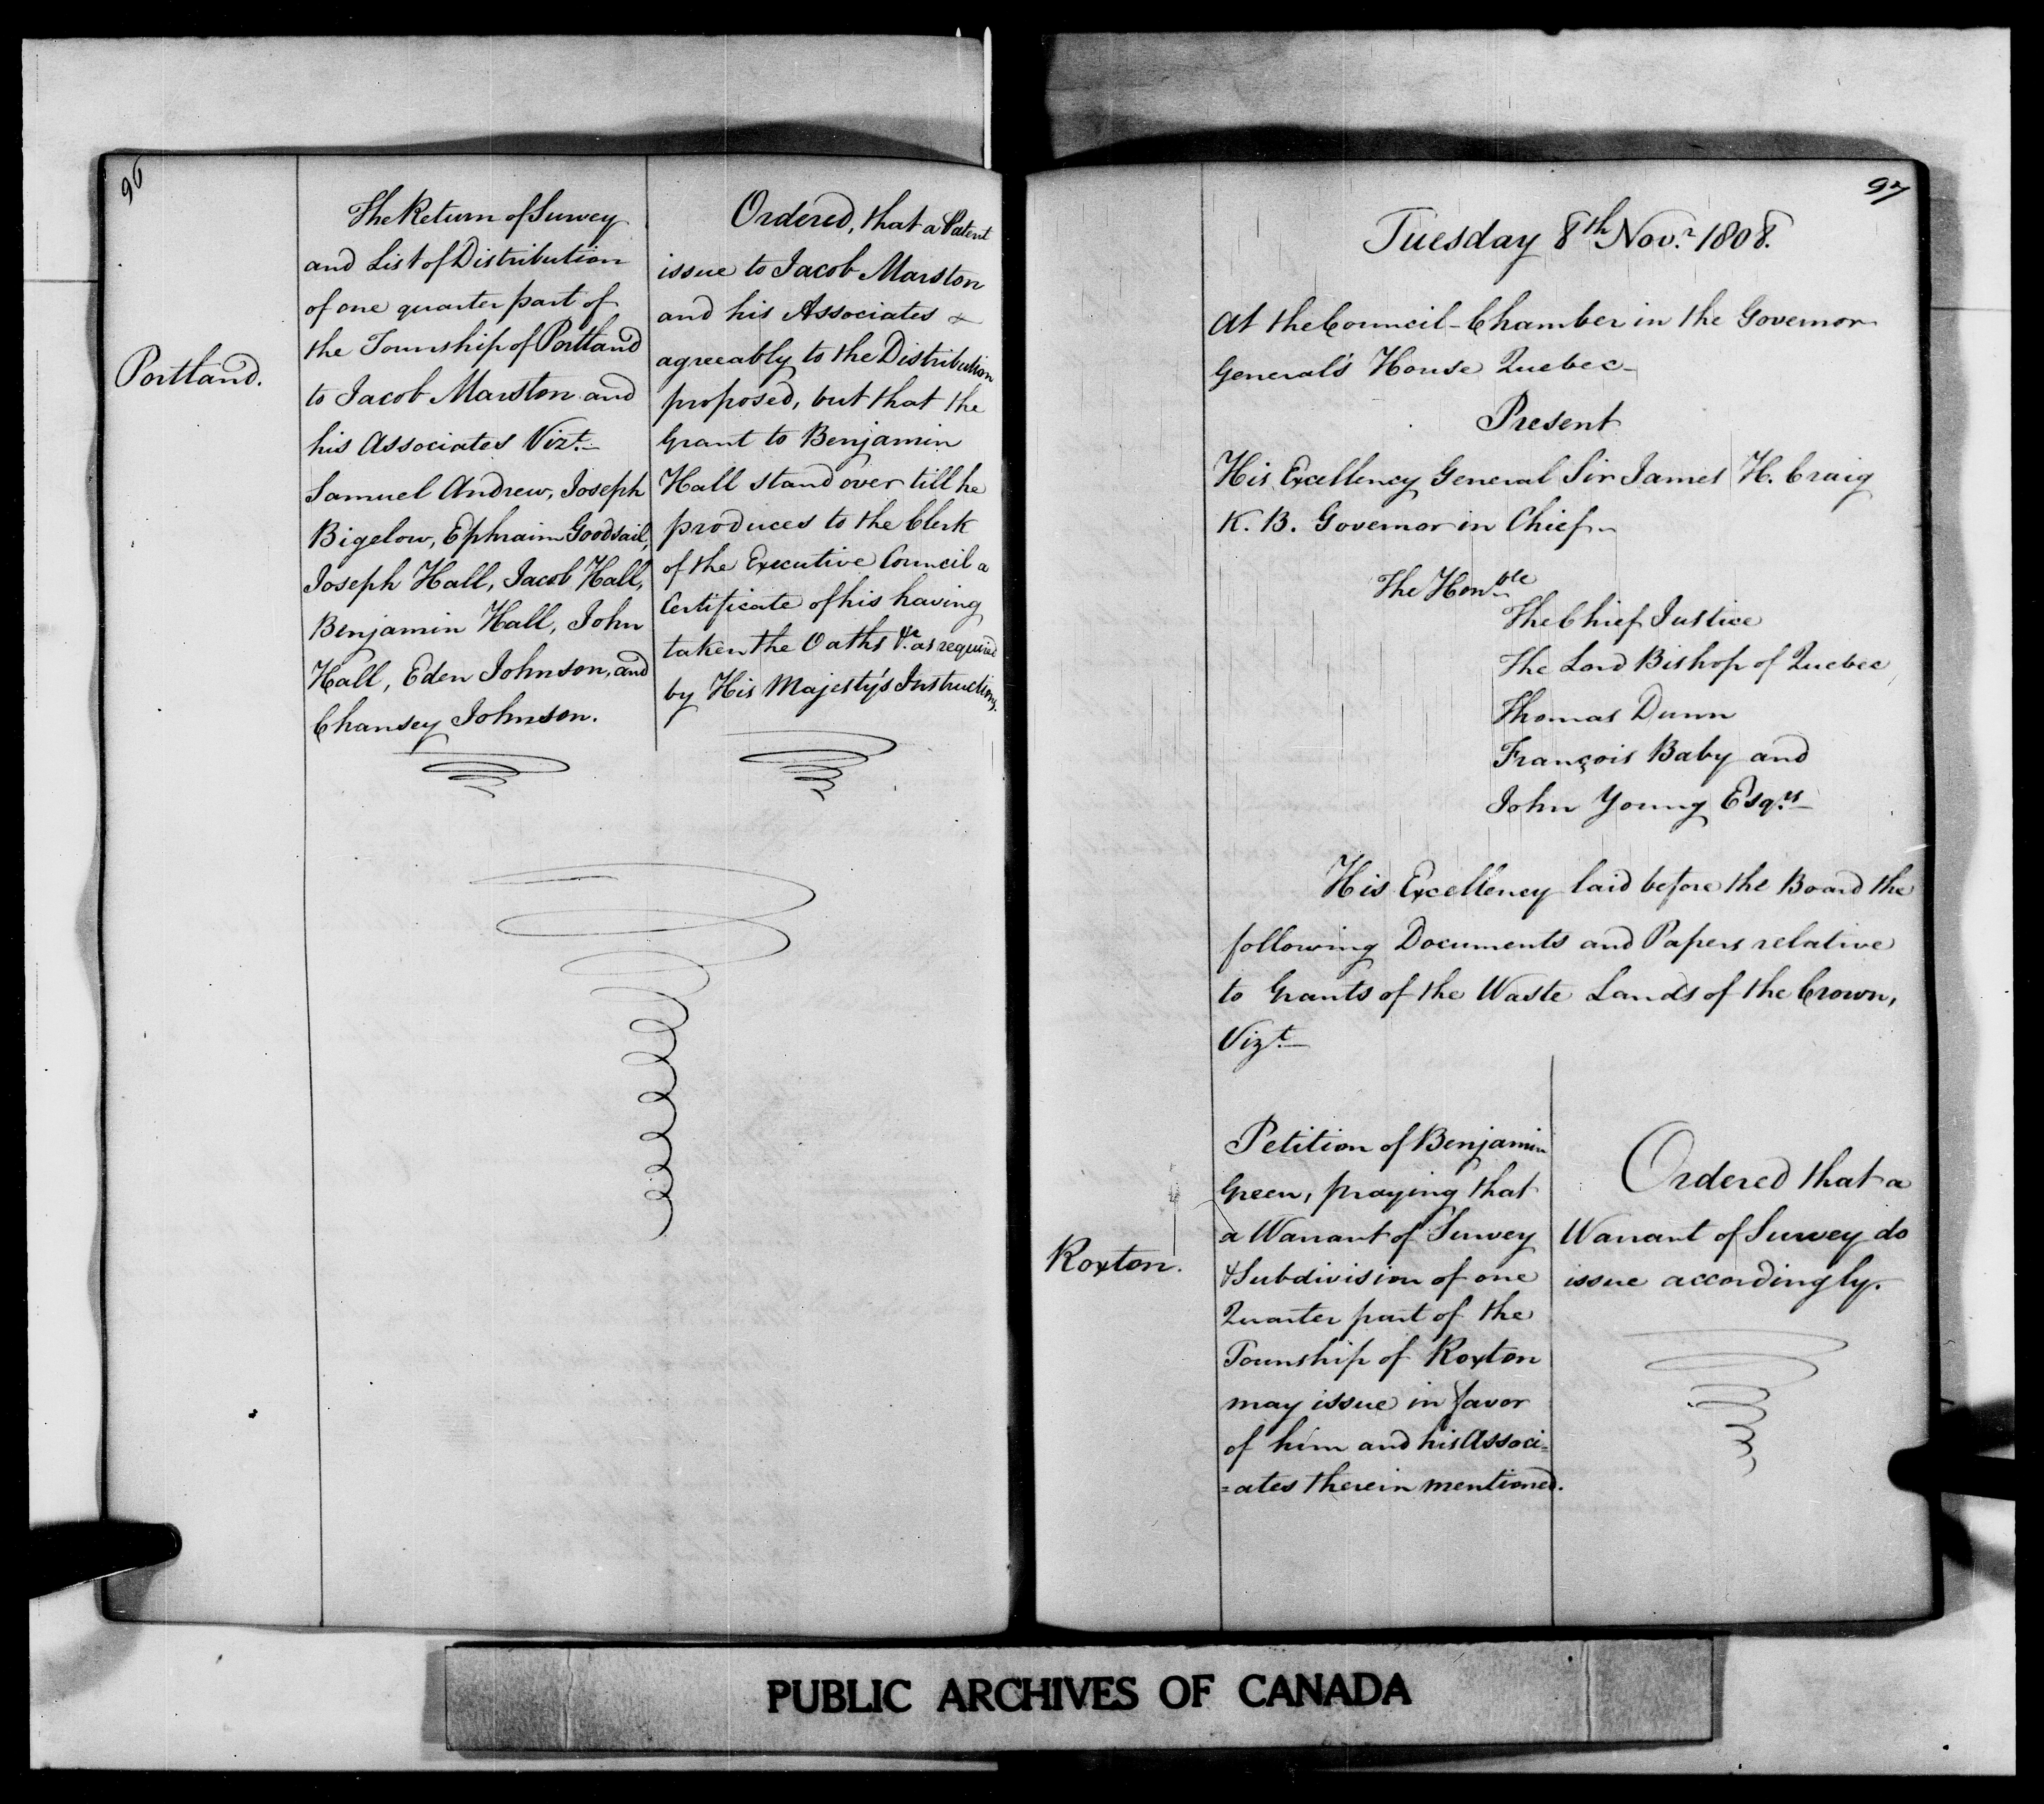 96
Portland.
The Return of Survey
and List of Distribution
of one quarter part of
the Township of Portland
to Jacob Marston and
his Associates Vizt.
Samuel Andrew, Joseph
Bigelow, Ephraim Goodsail,
Joseph Hall, Jacob Hall,
Benjamin Hall, John
Hall, Eden Johnson, and
Chansey Johnson.
Ordered, that a Patent
issue to Jacob Marston
and his Associates
agreeably to the Distribution
proposed, but that the
Grant to Benjamin
Hall stand over till he
produces to the Clerk
of the Executive Council a
Certificate of his having
taken the Oaths &c. as required
by His Majesty's Instructions.
97
Tuesday 8th Novr. 1808.
At the Council-Chamber in the Governor
General's House Quebec
Present
His Excellency General Sir James H. Craig
K. B. Governor in Chief
The Honble
The Chief Justice
The Lord Bishop of Quebec
Thomas Dunn
François Baby and
John Young Esqrs
His Excellency laid before the Board the
following Documents and Papers relative
to Grants of the Waste Lands of the Crown,
Vizt.
Roxton.
Petition of Benjamin
Green, praying that
a Warrant of Survey
& Subdivision of one
Quarter part of the
Township of Roxton
may issue in favor
of him and his Associ=
=ates therein mentioned.
Ordered that a
Warrant of Survey do
issue accordingly.
PUBLIC ARCHIVES OF CANADA